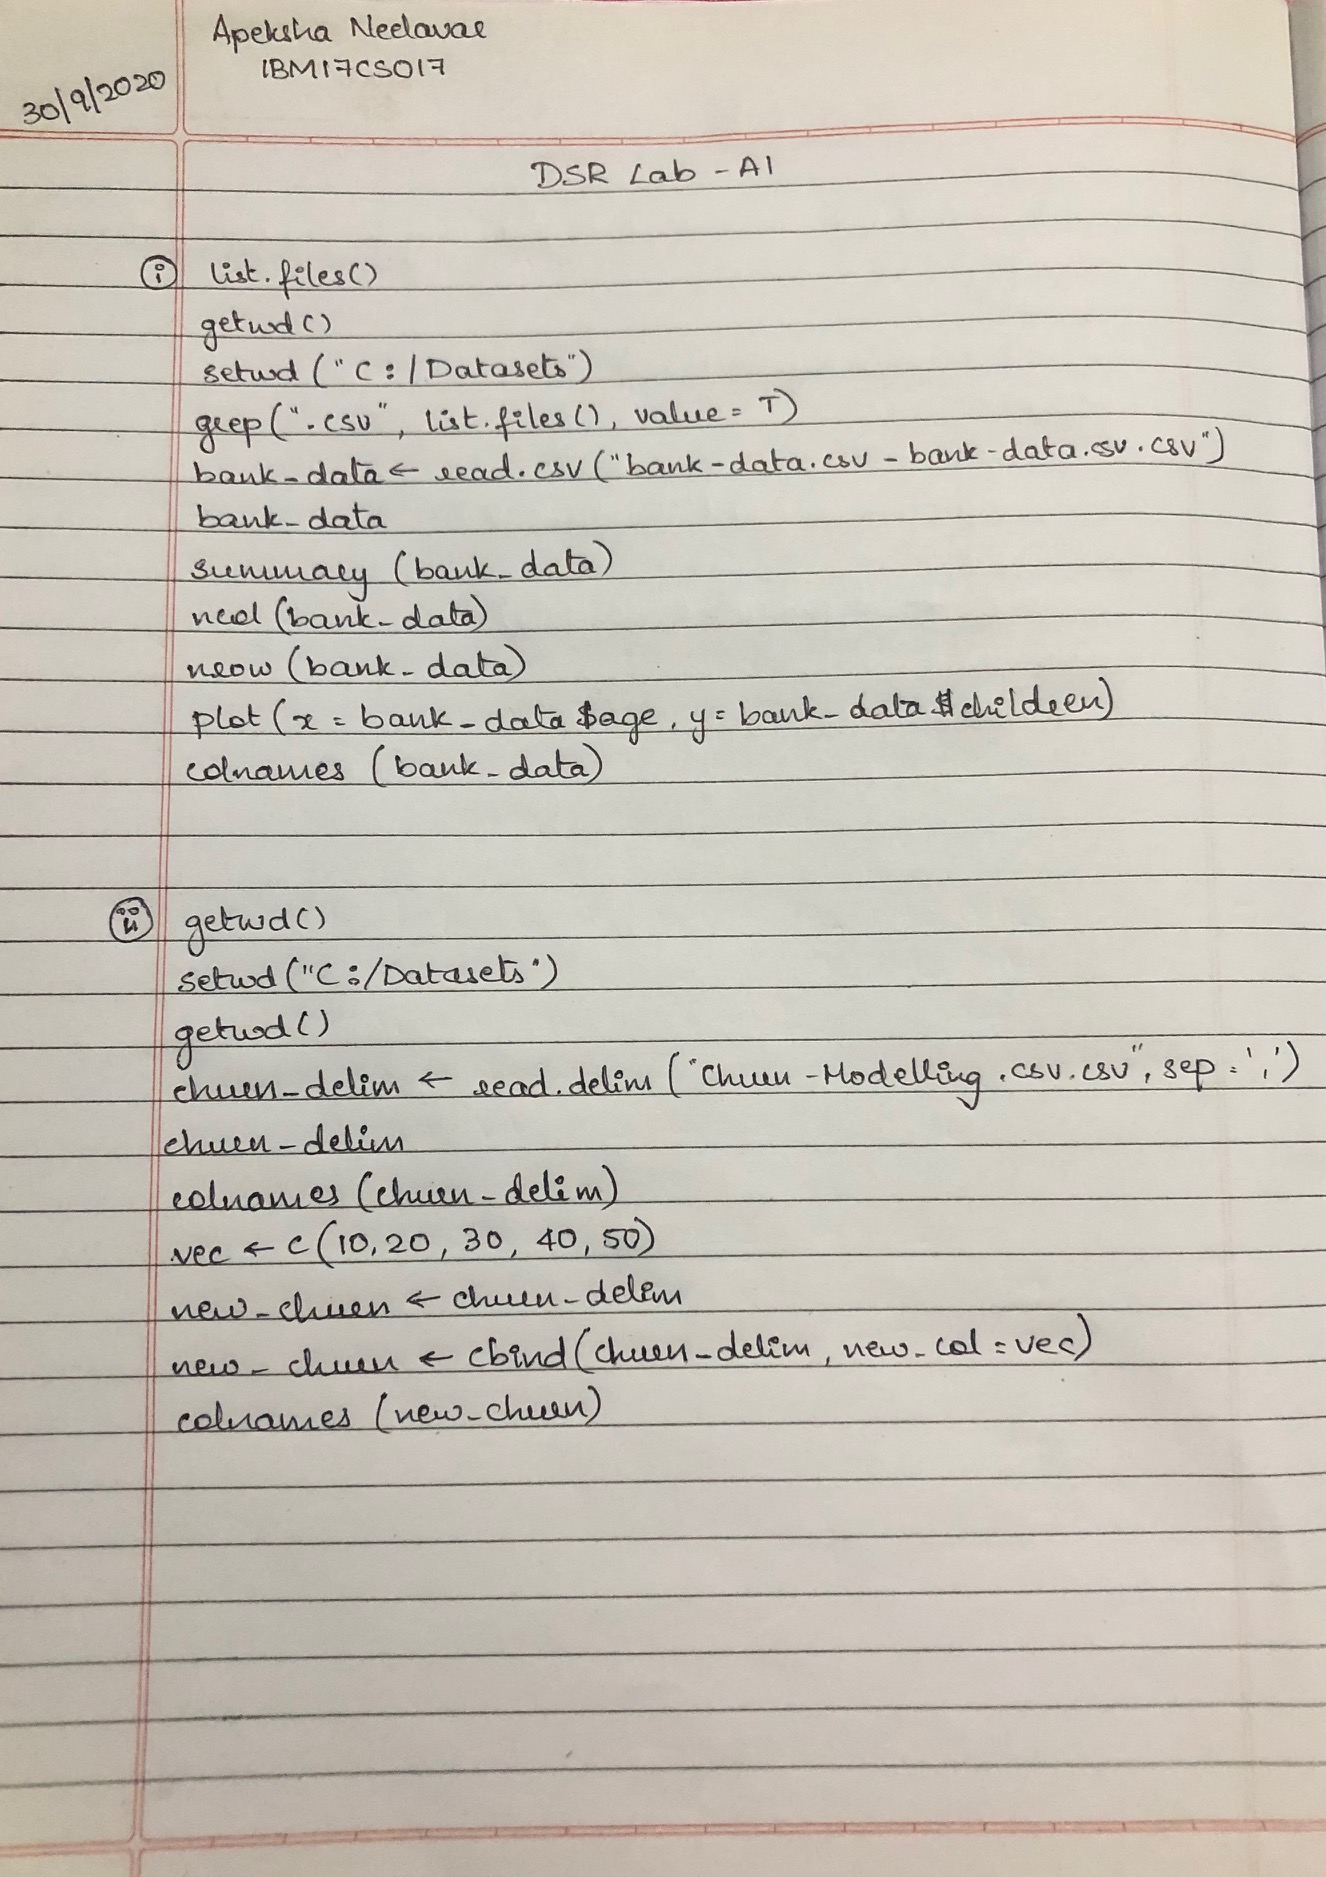 Apeksha Neelavar
1BM17CS017
30/9/2020
DSR Lab - A1
i list.files()
getwd()
setwd ("C:/Datasets")
grep(".csv", list.files(), value = T)
bank_data ← read.csv ("bank-data.csv - bank-data.csv.csv")
bank_data
summary (bank_data)
ncol (bank_data)
nrow (bank_data)
plot (x = bank_data $age, y = bank_data $children)
colnames (bank_data)
ii getwd()
setwd ("C:/Datasets")
getwd()
churn_delim ← read.delim ("Churn-Modelling.csv.csv", sep = ',')
churn_delim
colnames (churn_delim)
vec ← c (10, 20, 30, 40, 50)
new_churn ← churn_delim
new_churn ← cbind (churn_delim, new_col = vec)
colnames (new_churn)